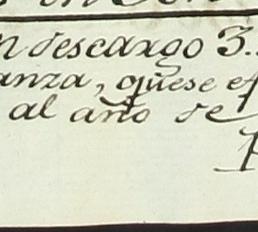 n descargo 3.
anza, quese ef
al año de